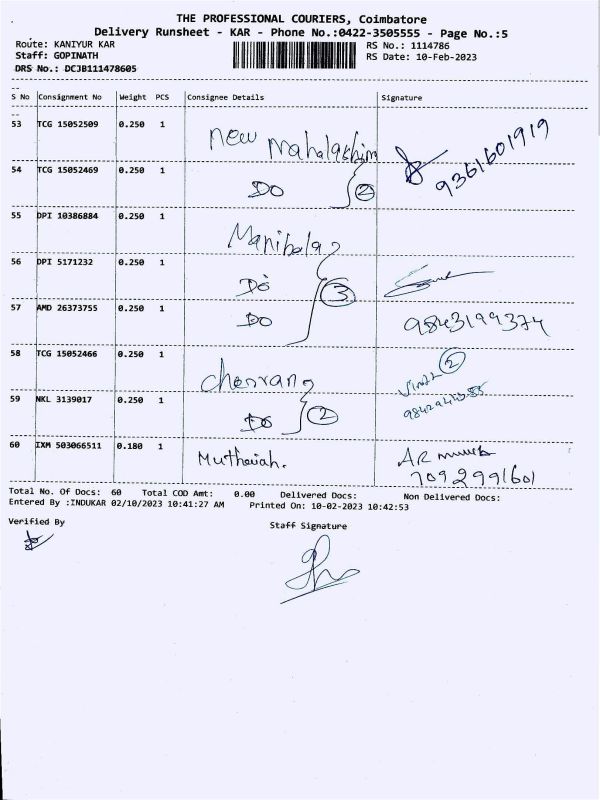 THE PROFESSIONAL COURIERS, Coimbatore
Delivery Runsheet - KAR - Phone No.:0422-3505555 - Page No.:5
Route: KANIYUR KAR RS No.: 1114786
Staff: GOPINATH RS Date: 10-Feb-2023
DRS No.: DCJB111478605
S No Consignment No Weight PCS Consignee Details Signature
53 TCG 15052509 0.250 1 New Mahalakshim
9361601919
54 TCG 15052469 0.250 1 DO 2
55 DPI 10386884 0.250 1 Manibala
56 DPI 5171232 0.250 1 Do 3
57 AMD 26373755 0.250 1 DO 9843199374
58 TCG 15052466 0.250 1 2
59 NKL 3139017 0.250 1 DO 2
60 IXM 503066511 0.180 1 Muthaiah. AR
7092991601
Total No. Of Docs: 60 Total COD Amt: 0.00 Delivered Docs: Non Delivered Docs:
Entered By :INDUKAR 02/10/2023 10:41:27 AM Printed On: 10-02-2023 10:42:53
Verified By Staff Signature